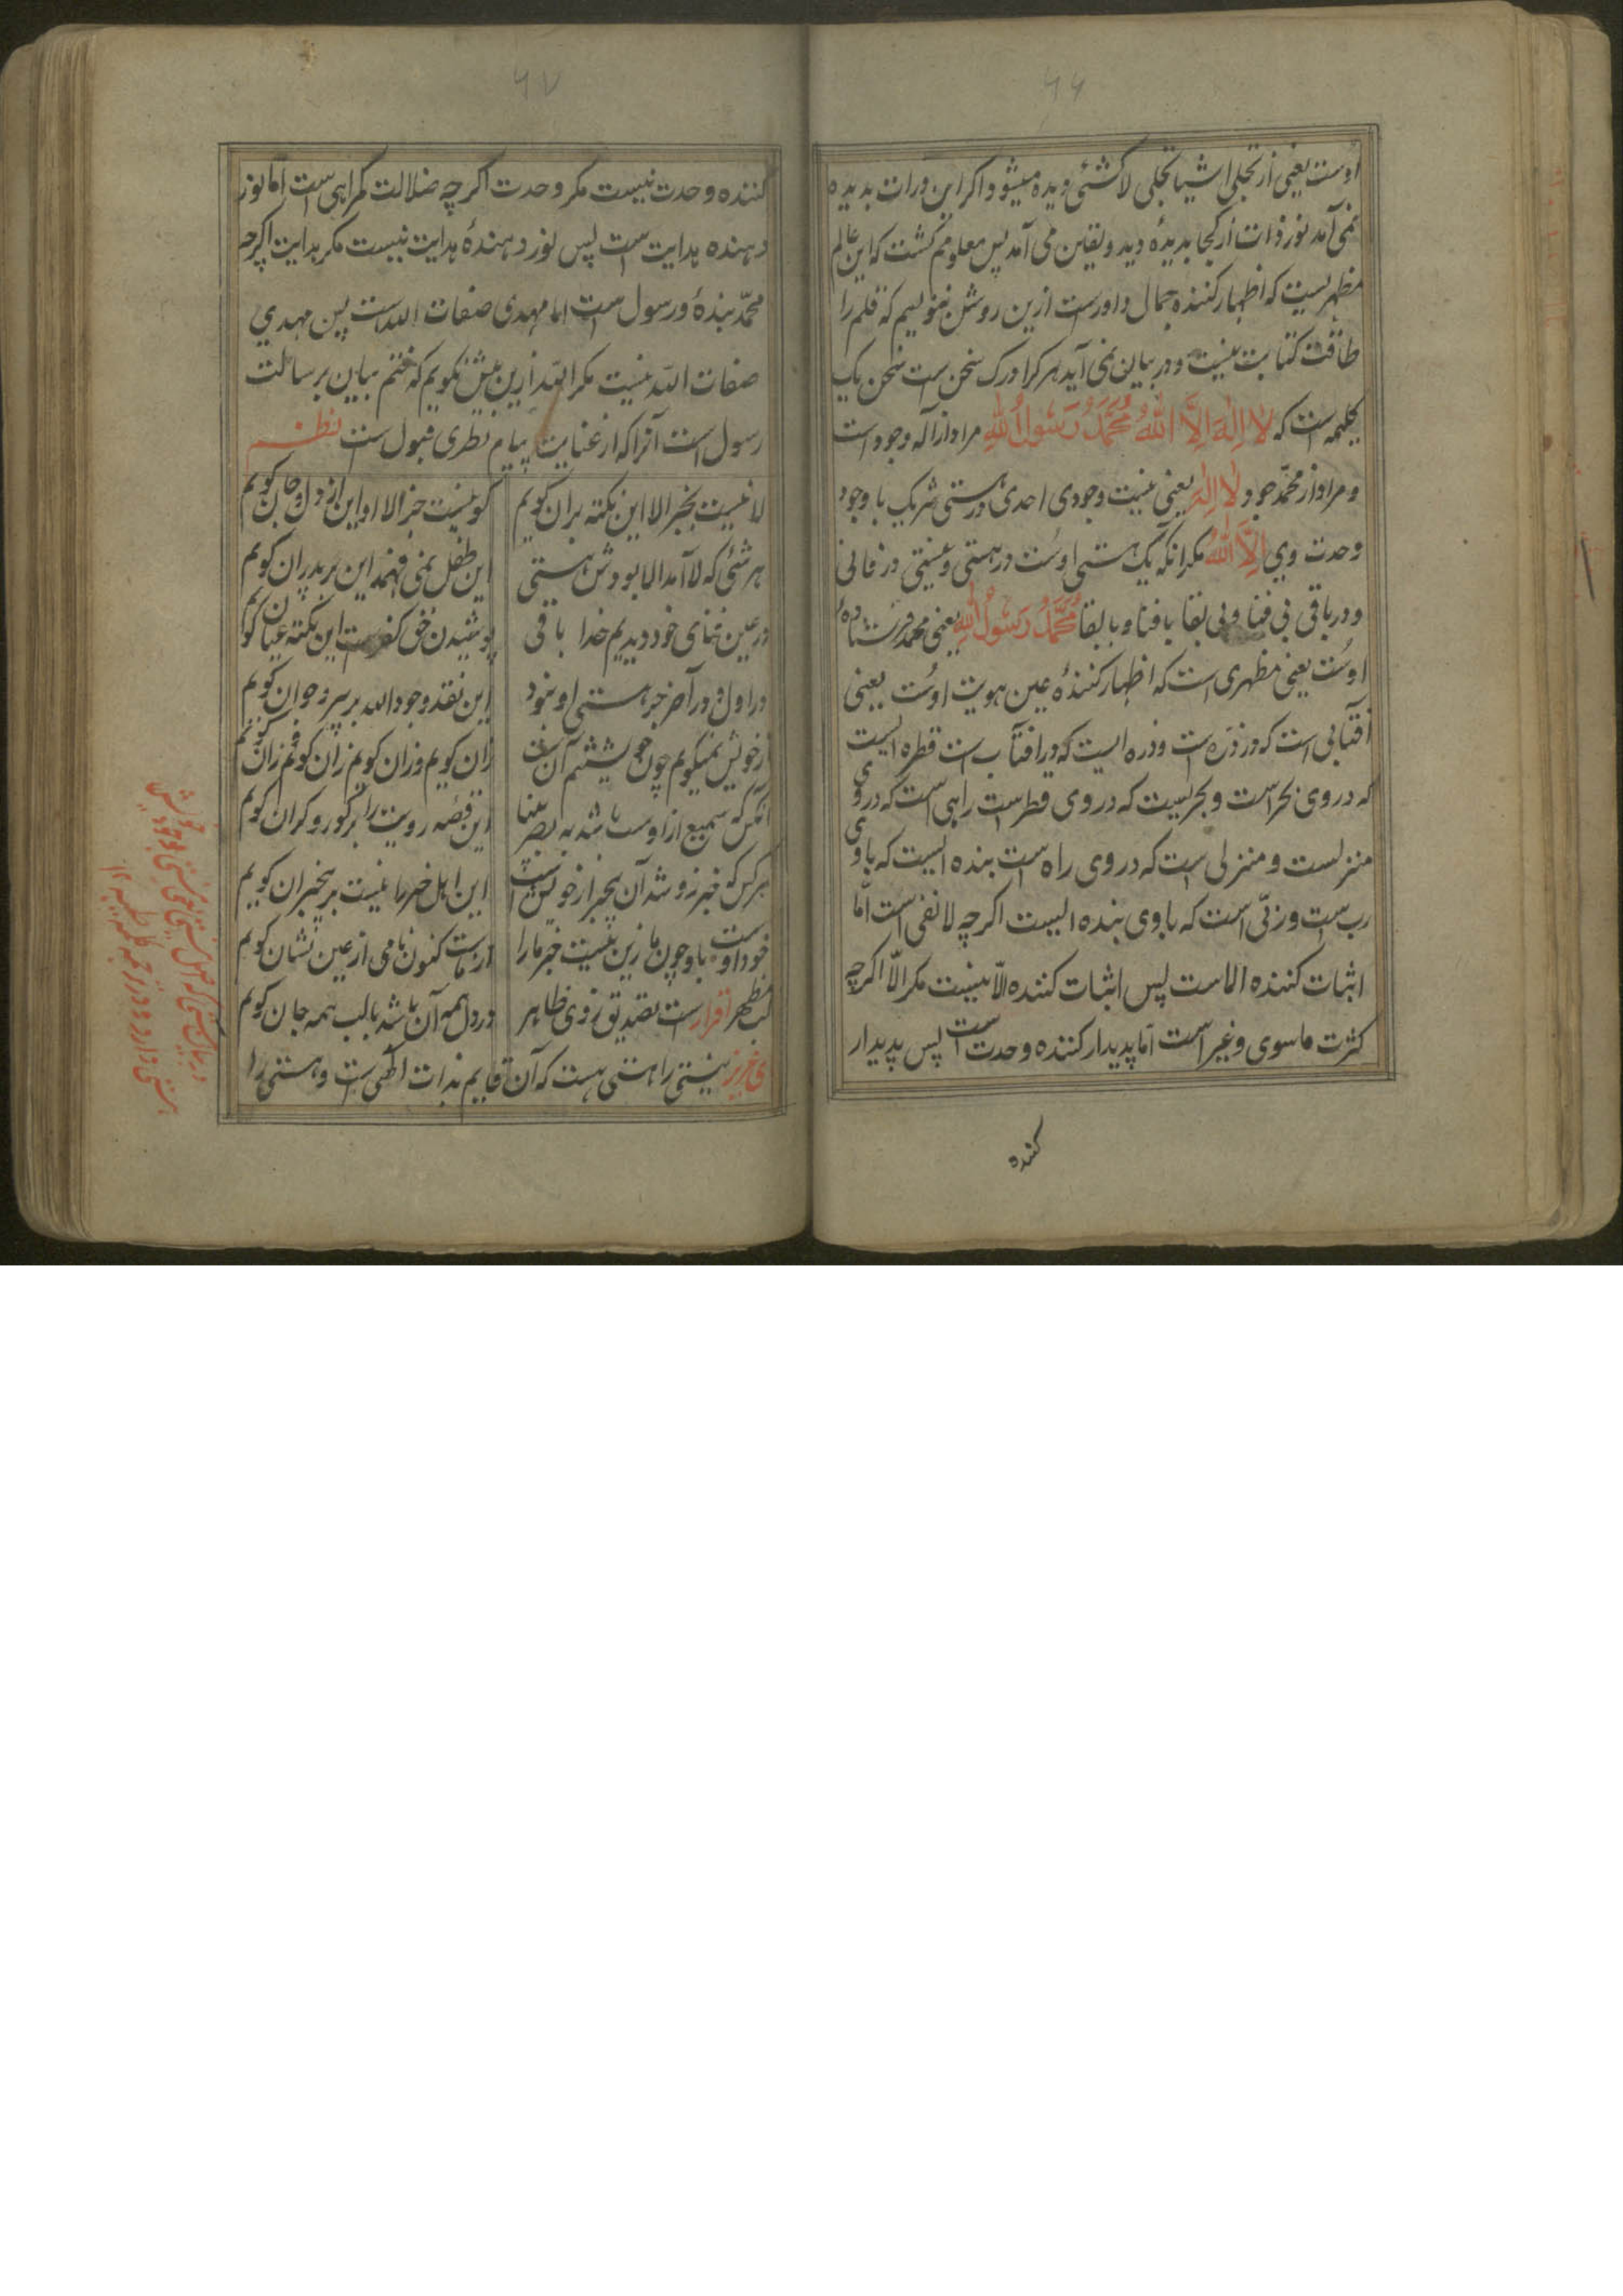 ۶۶
اوست یعنی از تجلی اشیا تجلی لاکشئی دیده میشود و اکر این درات بدیده
نمی آمد نور ذات از کجا بدیدهٔ دید و یقین می آمد پس معلومم کشت که این عالم
مظهریست که اظهار کننده جمال داورست ازین روشن ننویسم که قلم را
طاقت کتابت نیست و در بیان نمی آید هر کرا درک سخن است سخن یک
کلیمه است که لا اله الا الله محمد رسول الله مراد از اله وجود است
و مراد از محمد جود لا اله یعنی نیست وجودی احدی در هستی شریک با وجود
وحدت وی الا الله مکر انکه یک هستی اوست در هستی و نیستی در فانی
و در باقی بی فنا و بی بقا با فنا و با بقا محمد رسول الله یعنی محمد فرستادهٔ
اوست یعنی مظهری است که اظهار کنندهٔ عین هویت اوست یعنی
آفتابی است که در ذره است و ذره ایست که در افتاب است قطره ایست
که در وی بحر است و بحریست که در وی قطره است راهی است که در وی
منزلست و منزلی است که در وی راه است بنده ایست که با وی
رب است و ربی است که با وی بنده ایست اکر چه لا نفی است اما
اثبات کننده الاست پس اثبات کننده الا نیست مکر الا اکر چه
کثرت ماسوی و غیر است اما پدیدار کننده وحدت است پس پدیدار
کننده
۶۷
کننده وحدت نیست مکر وحدت اکر چه ضلالت کمراهی است اما نور
دهنده هدایت است پس نور دهندهٔ هدایت نیست مکر هدایت اکر چه
محمد بندهٔ و رسول است اما مهدی صفات الله است پس مهدی
صفات الله نیست مکر الله ازین بیش نکویم که ختم بیان بر سالت
رسول است آنرا که از عنایت پیام نظری قبول است نظم
لا نیست بجز الا این نکته بران کویم کو نیست جز الا او این از دل و جان کویم
هر شئی که لا آمد الا بودش هستی این طفل نمی فهمد این بر پدران کویم
در عین فنای خود دیدیم خدا باقی پوشیدن حق کفر است این نکته عیان کویم
در اول و در آخر جز هستی او نبود این نقد وجود الله بر پیر و جوان کویم
از خویش نمیکویم چون زان کویم و زان کویم زان کویم زان کویم
آنکس که سمیع از اوست شد به بصر بینا این قصه رویت را بر کور و کران کویم
هر کس که خبر زو شد آن بیخبر از خویش است این اهل خبر را نیست بر بیخبران کویم
خود اوست با و چون ما زین نیست خبر ما را از ماست کنون نامی از عین نشان کویم
لب مظهر اقرار است تصدیق زوی ظاهر در دل همه آن باشد با لب همه جان کویم
ای عزیز نیستی را هستی هست که آن قایم بذات الهی است و هستی را